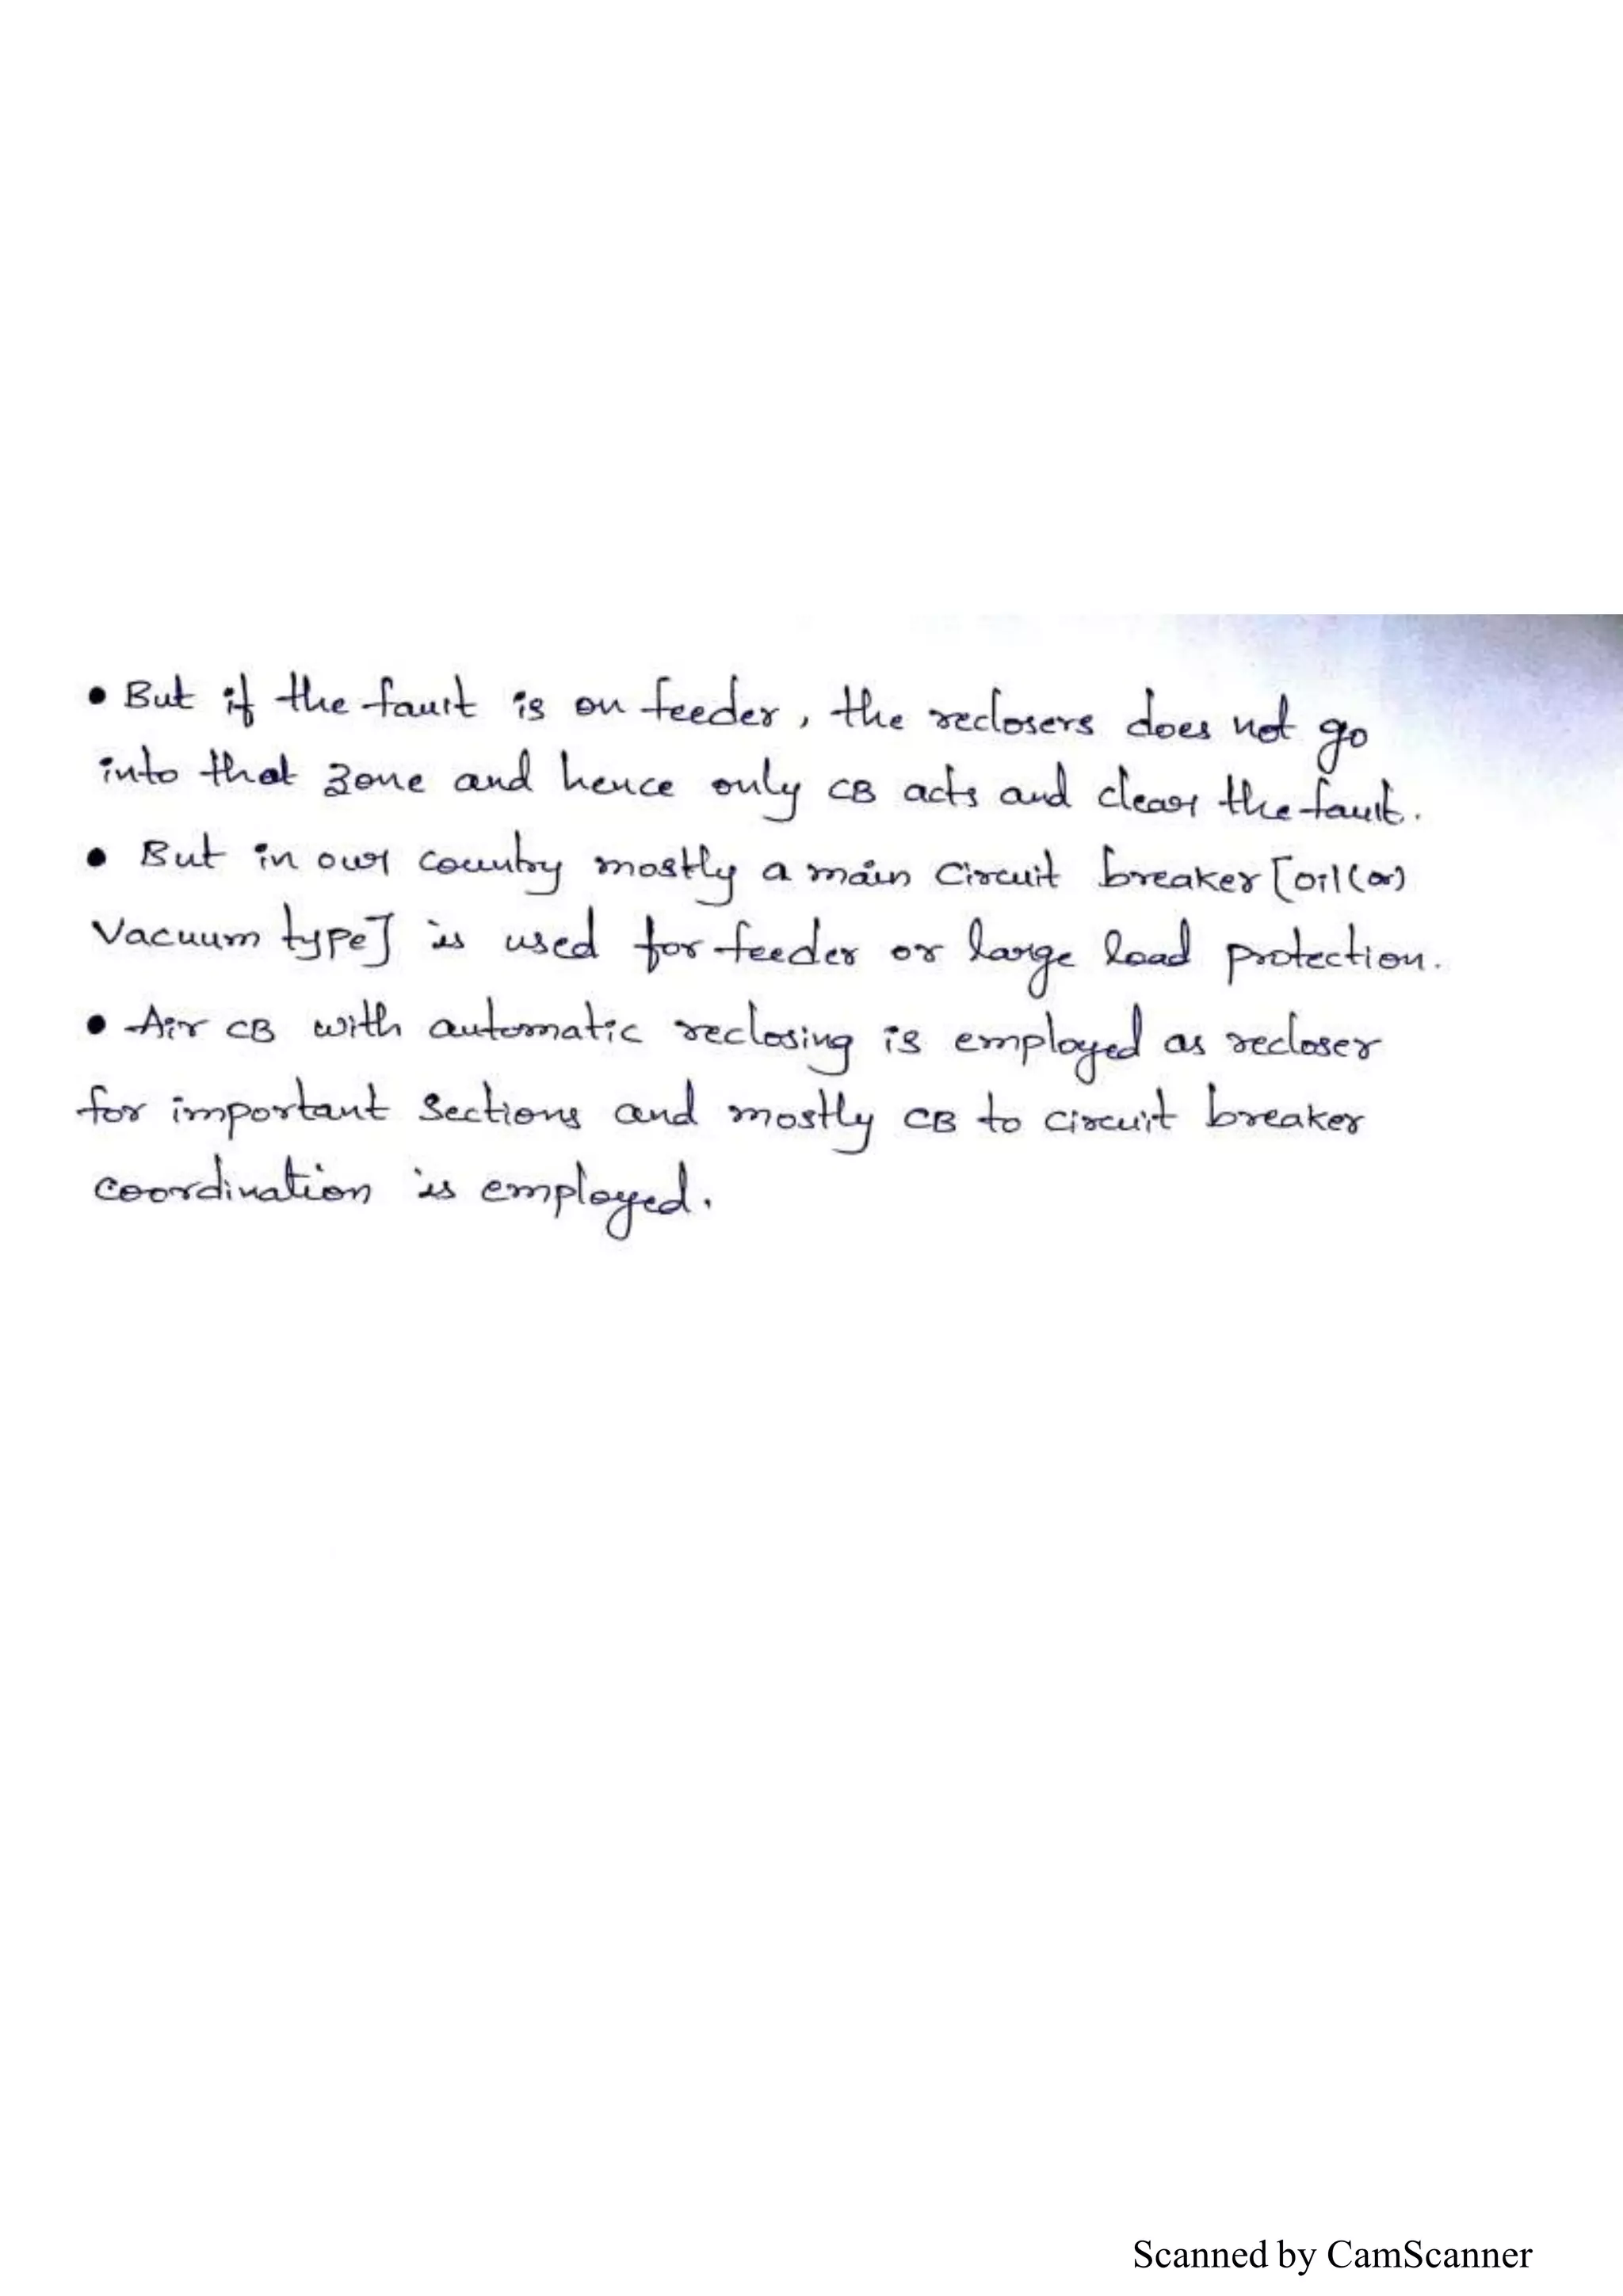 • But if the fault is on feeder, the reclosers does not go
into that zone and hence only CB acts and clear the fault.
• But in our country mostly a main circuit breaker [oil (or)
Vacuum type] is used for feeder or large load protection.
• Air CB with automatic reclosing is employed as recloser
for important sections and mostly CB to circuit breaker
coordination is employed.
Scanned by CamScanner